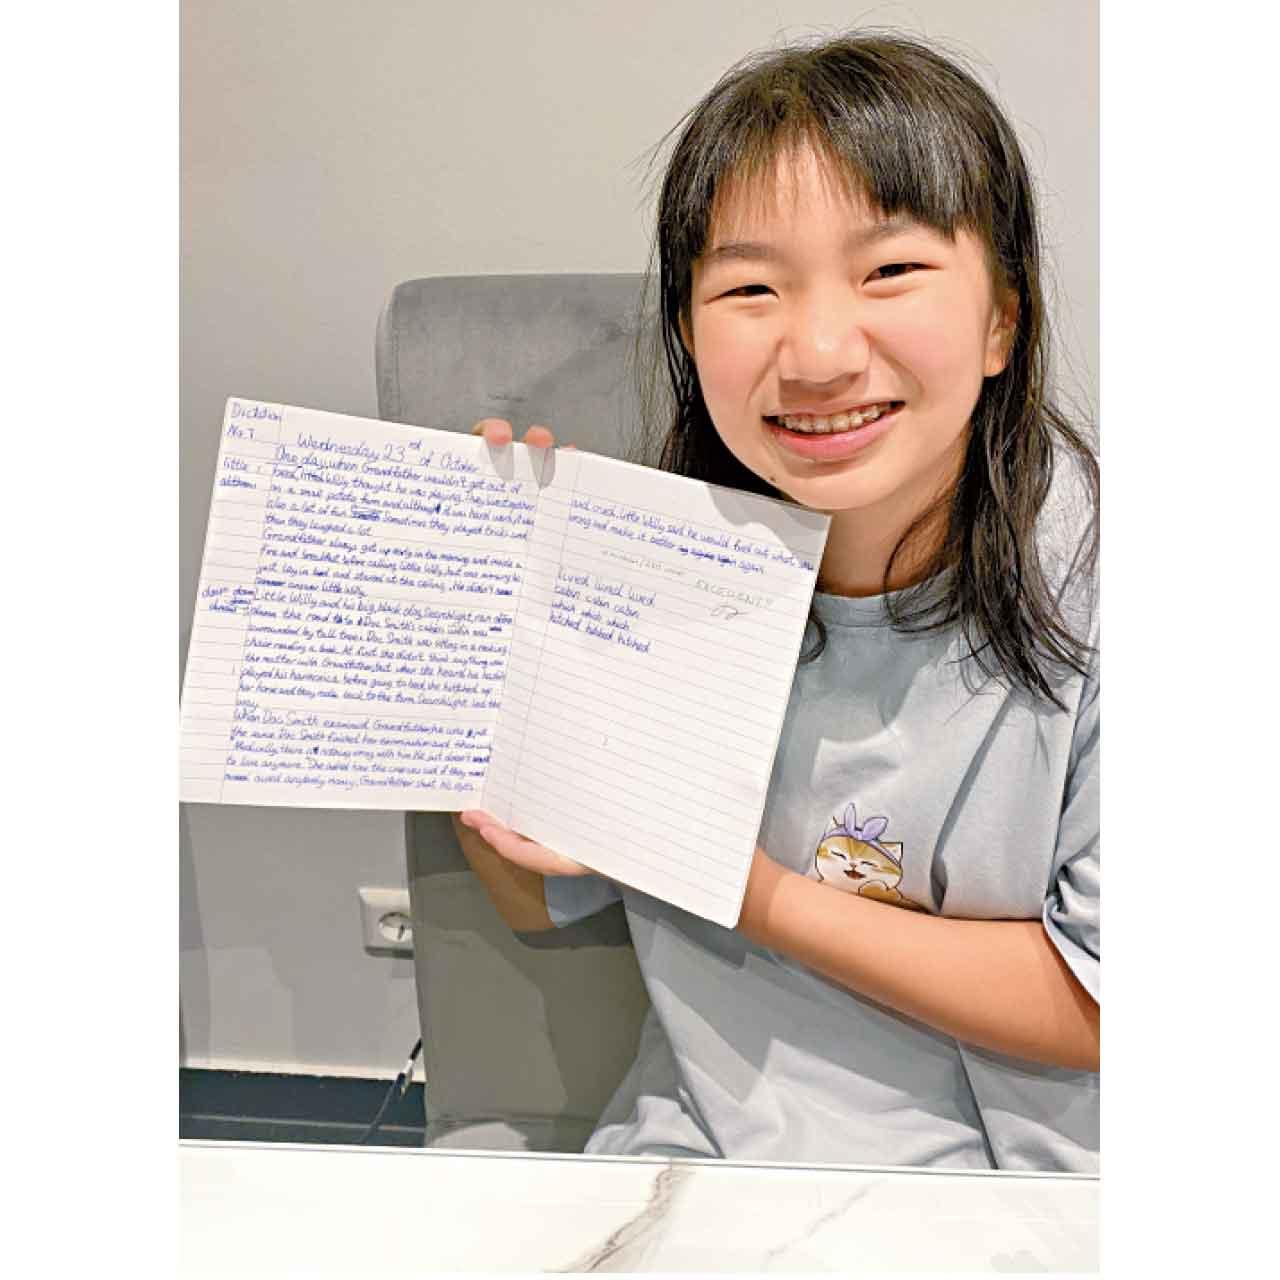 Dictation
No. 7
Wednesday 23rd of October
One day, when Grandfather wouldn't get out of
little bed, little Willy thought he was playing. They lived together
on a small potato farm and although it was hard work, it was
also a lot of fun. Sometimes they played tricks and
then they laughed a lot.
Grandfather always got up early in the morning and made a
fire and breakfast before calling little Willy, but one morning he
just lay in bed and stared at the ceiling. He didn't
answer little Willy.
Little Willy and his big black dog, Searchlight, ran
down the road to Doc Smith's cabin which was
surrounded by tall trees. Doc Smith was sitting in a rocking
chair reading a book. At first she didn't think anything was
the matter with Grandfather, but when she heard he hadn't
played his harmonica before going to bed, she hitched up
her horse and they rode back to the farm. Searchlight led the
way.
When Doc Smith examined Grandfather, he was just
the same. Doc Smith finished her examination and then said,
"Medically, there is nothing wrong with him. He just doesn't want
to live anymore." She asked how the crop was and if they
owed anybody money. Grandfather shut his eyes
and cried. Little Willy said he would find out what was
wrong and make it better again.
EXCELLENT!!
lived lived lived
cabin cabin cabin
which which which
hitched hitched hitched